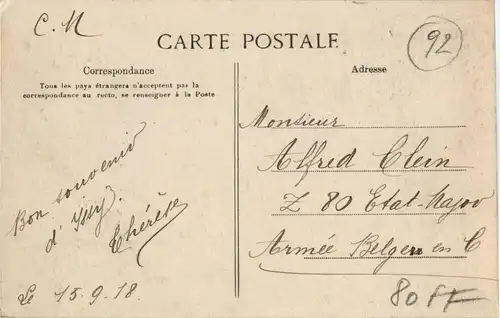 C. M
92
CARTE POSTALE
Correspondance
Tous les pays étrangers n'acceptent pas la
correspondance au recto, se renseigner à la Poste
Bon souvenir
d'Issy.
Thérèse
Le 15.9.18
Adresse
Monsieur
Alfred Clein
Z 80 Etat-Major
Armée Belge en C
80